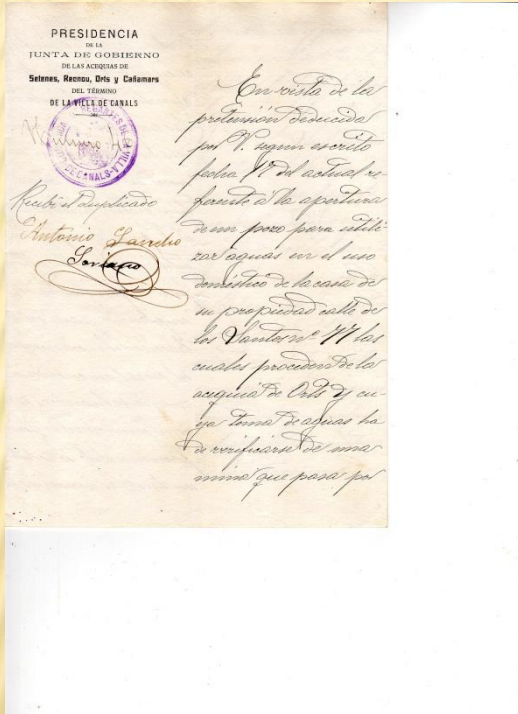 PRESIDENCIA
DE LA
JUNTA DE GOBIERNO
DE LAS ACEQUIAS DE
Setenes, Recnou, Orts y Cañamars
DEL TÉRMINO
DE LA VILLA DE CANALS
REGANTES DE LA VILLA
DE CANALS
Recibí el duplicado
Antonio Sancho
Soriano
En vista de la
pretensión deducida
por V. segun escrito
fecha 17 del actual re-
ferente á la apertura
de un pozo para utili-
zar aguas en el uso
doméstico de la casa de
su propiedad calle de
los Santos nº 77 las
cuales proceden de la
acequia de Orts y cu-
ya toma de aguas ha
de verificarse de una
mina que pasa por